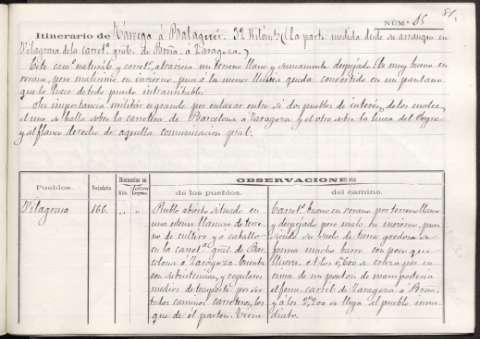 NÚM.º 85
Itinerario de Tárrega á Balaguer. 32 Kilóm.s (La parte medida desde su arranque en
Vilagrasa de la carret.ª gral. de Barna. á Zaragoza)
Este cam.º natural y carret.º, atraviesa un terreno llano y sumamente despejado. Es muy bueno en
verano, pero malísimo en invierno, pues á la menor lluvia queda convertido en un pantano
que lo hace de todo punto intransitable.
Su importancia militar es grande por enlazar entre sí dos pueblos de interés, de los cuales,
el uno se halla sobre la carretera de Barcelona á Zaragoza y el otro sobre la línea del Segre
y al flanco derecho de aquella comunicación gral.
Pueblos.
Vecindario
OBSERVACIONES
de los pueblos.
del camino.
Vilagrasa
166
Pueblo abierto situado en
una extensa llanura de terre-
no de cultivo y á caballo
en la carret.ª gral. de Bar-
celona á Zaragoza. Cuenta
con subsistencias, y regulares
medios de trasporte por ser
todos caminos carreteros, los
que de él parten. Tiene
Carret.º bueno en verano por terreno llano
y despejado pero malo en invierno, pues
siendo su suelo de tierra gredosa se
forma mucho barro con poco que
llueva. A los 1,600 se cruza por en-
cima de un pontón de mampostería
el ferro-carril de Zaragoza á Barna.
y á los 2,200 se llega al pueblo inme-
diato.